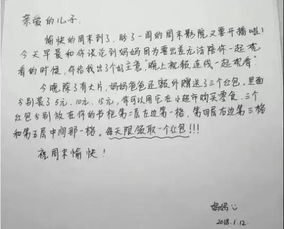 亲爱的儿子:
愉快的周末到了,盼了一周的周末影院又要开播啦!
今天早晨和你说到妈妈因为要出差无法陪你一起观
看的时候,你给我出了个主意"晚上视频连线一起观看"
今晚除了有大片,妈妈爸爸还额外赠送了三个红包,里面
分别装了5元、10元、15元,你可以用它在小超市购买零食,三个
红包分别放在你的书柜第二层左边第一格,第四层右边第三格
和第五层中间那一格。每天限领取一个红包!!!
祝周末愉快!
妈妈
2018.1.12